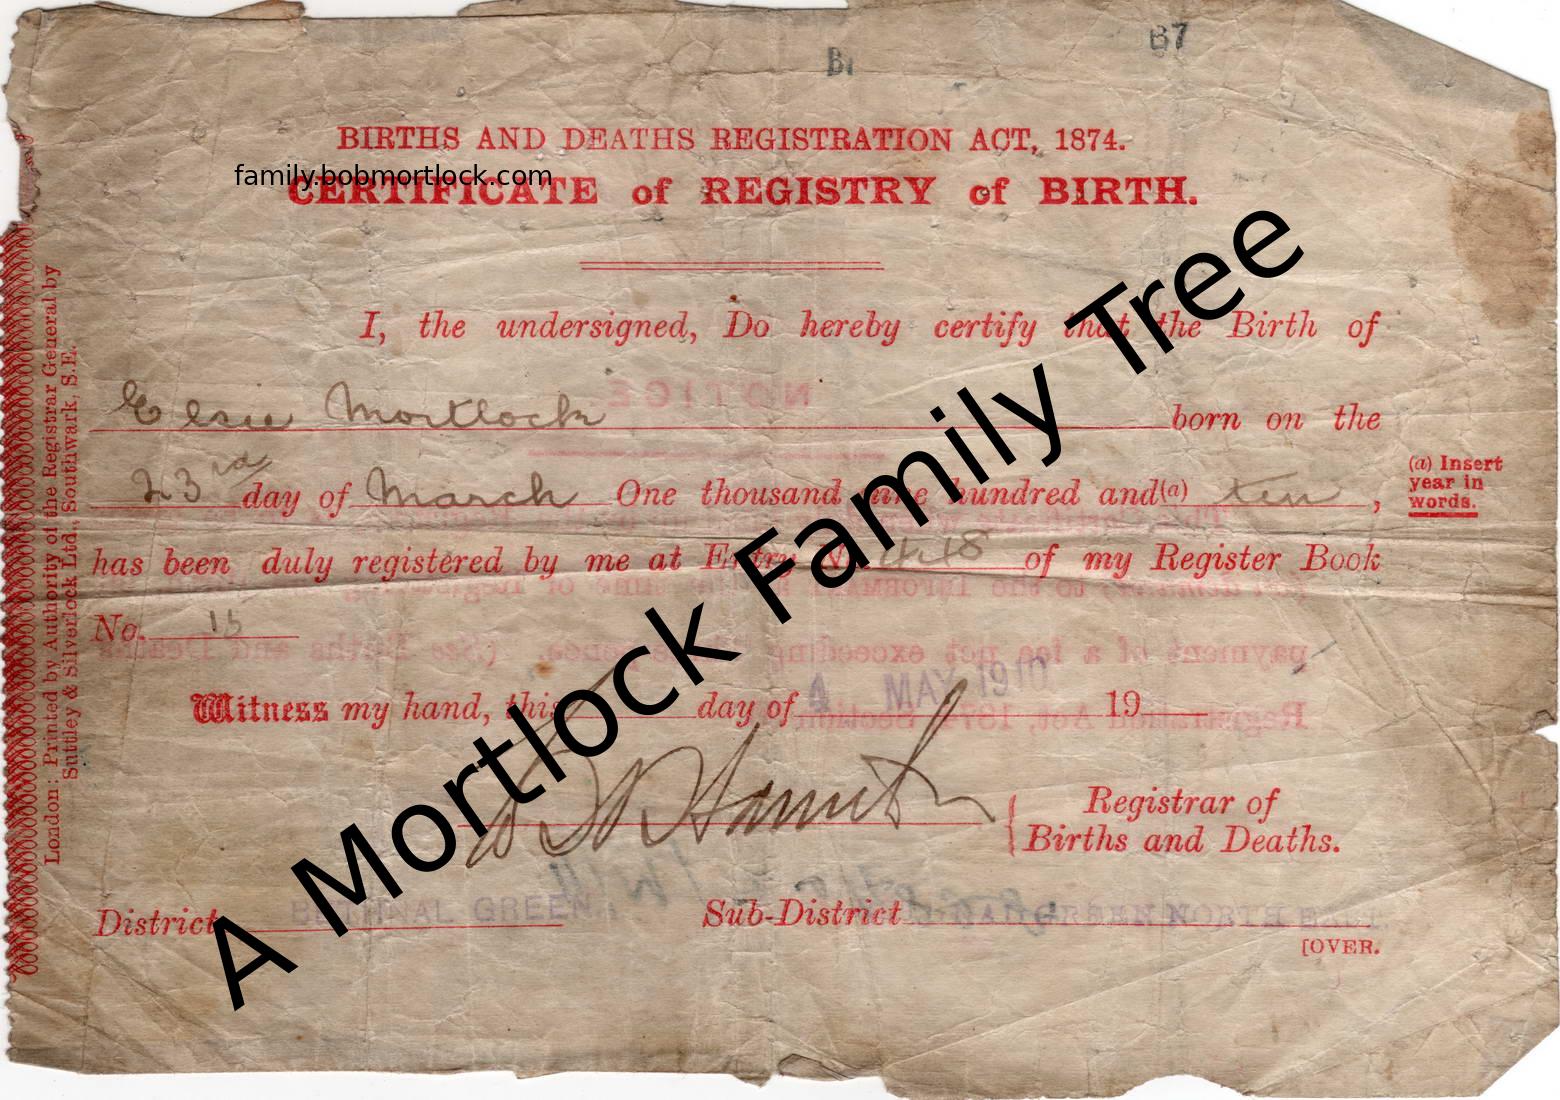 B7
BIRTHS AND DEATHS REGISTRATION ACT, 1874.
family.bobmortlock.com
CERTIFICATE of REGISTRY of BIRTH.
I, the undersigned, Do hereby certify that the Birth of
NOTICE
Elsie Mortlock born on the
23rd day of March One thousand nine hundred and(a) ten,
(a) Insert
year in
words.
has been duly registered by me at Entry No. 418 of my Register Book
No. 15
payment of a fee not exceeding
Witness my hand, this day of 4 MAY 1910 19
Registrar of
Births and Deaths.
District BETHNAL GREEN Sub-District GREEN NORTH EAST
[OVER.
London: Printed by Authority of the Registrar General by
Suttley & Silverlock Ltd., Southwark, S.E.
A Mortlock Family Tree